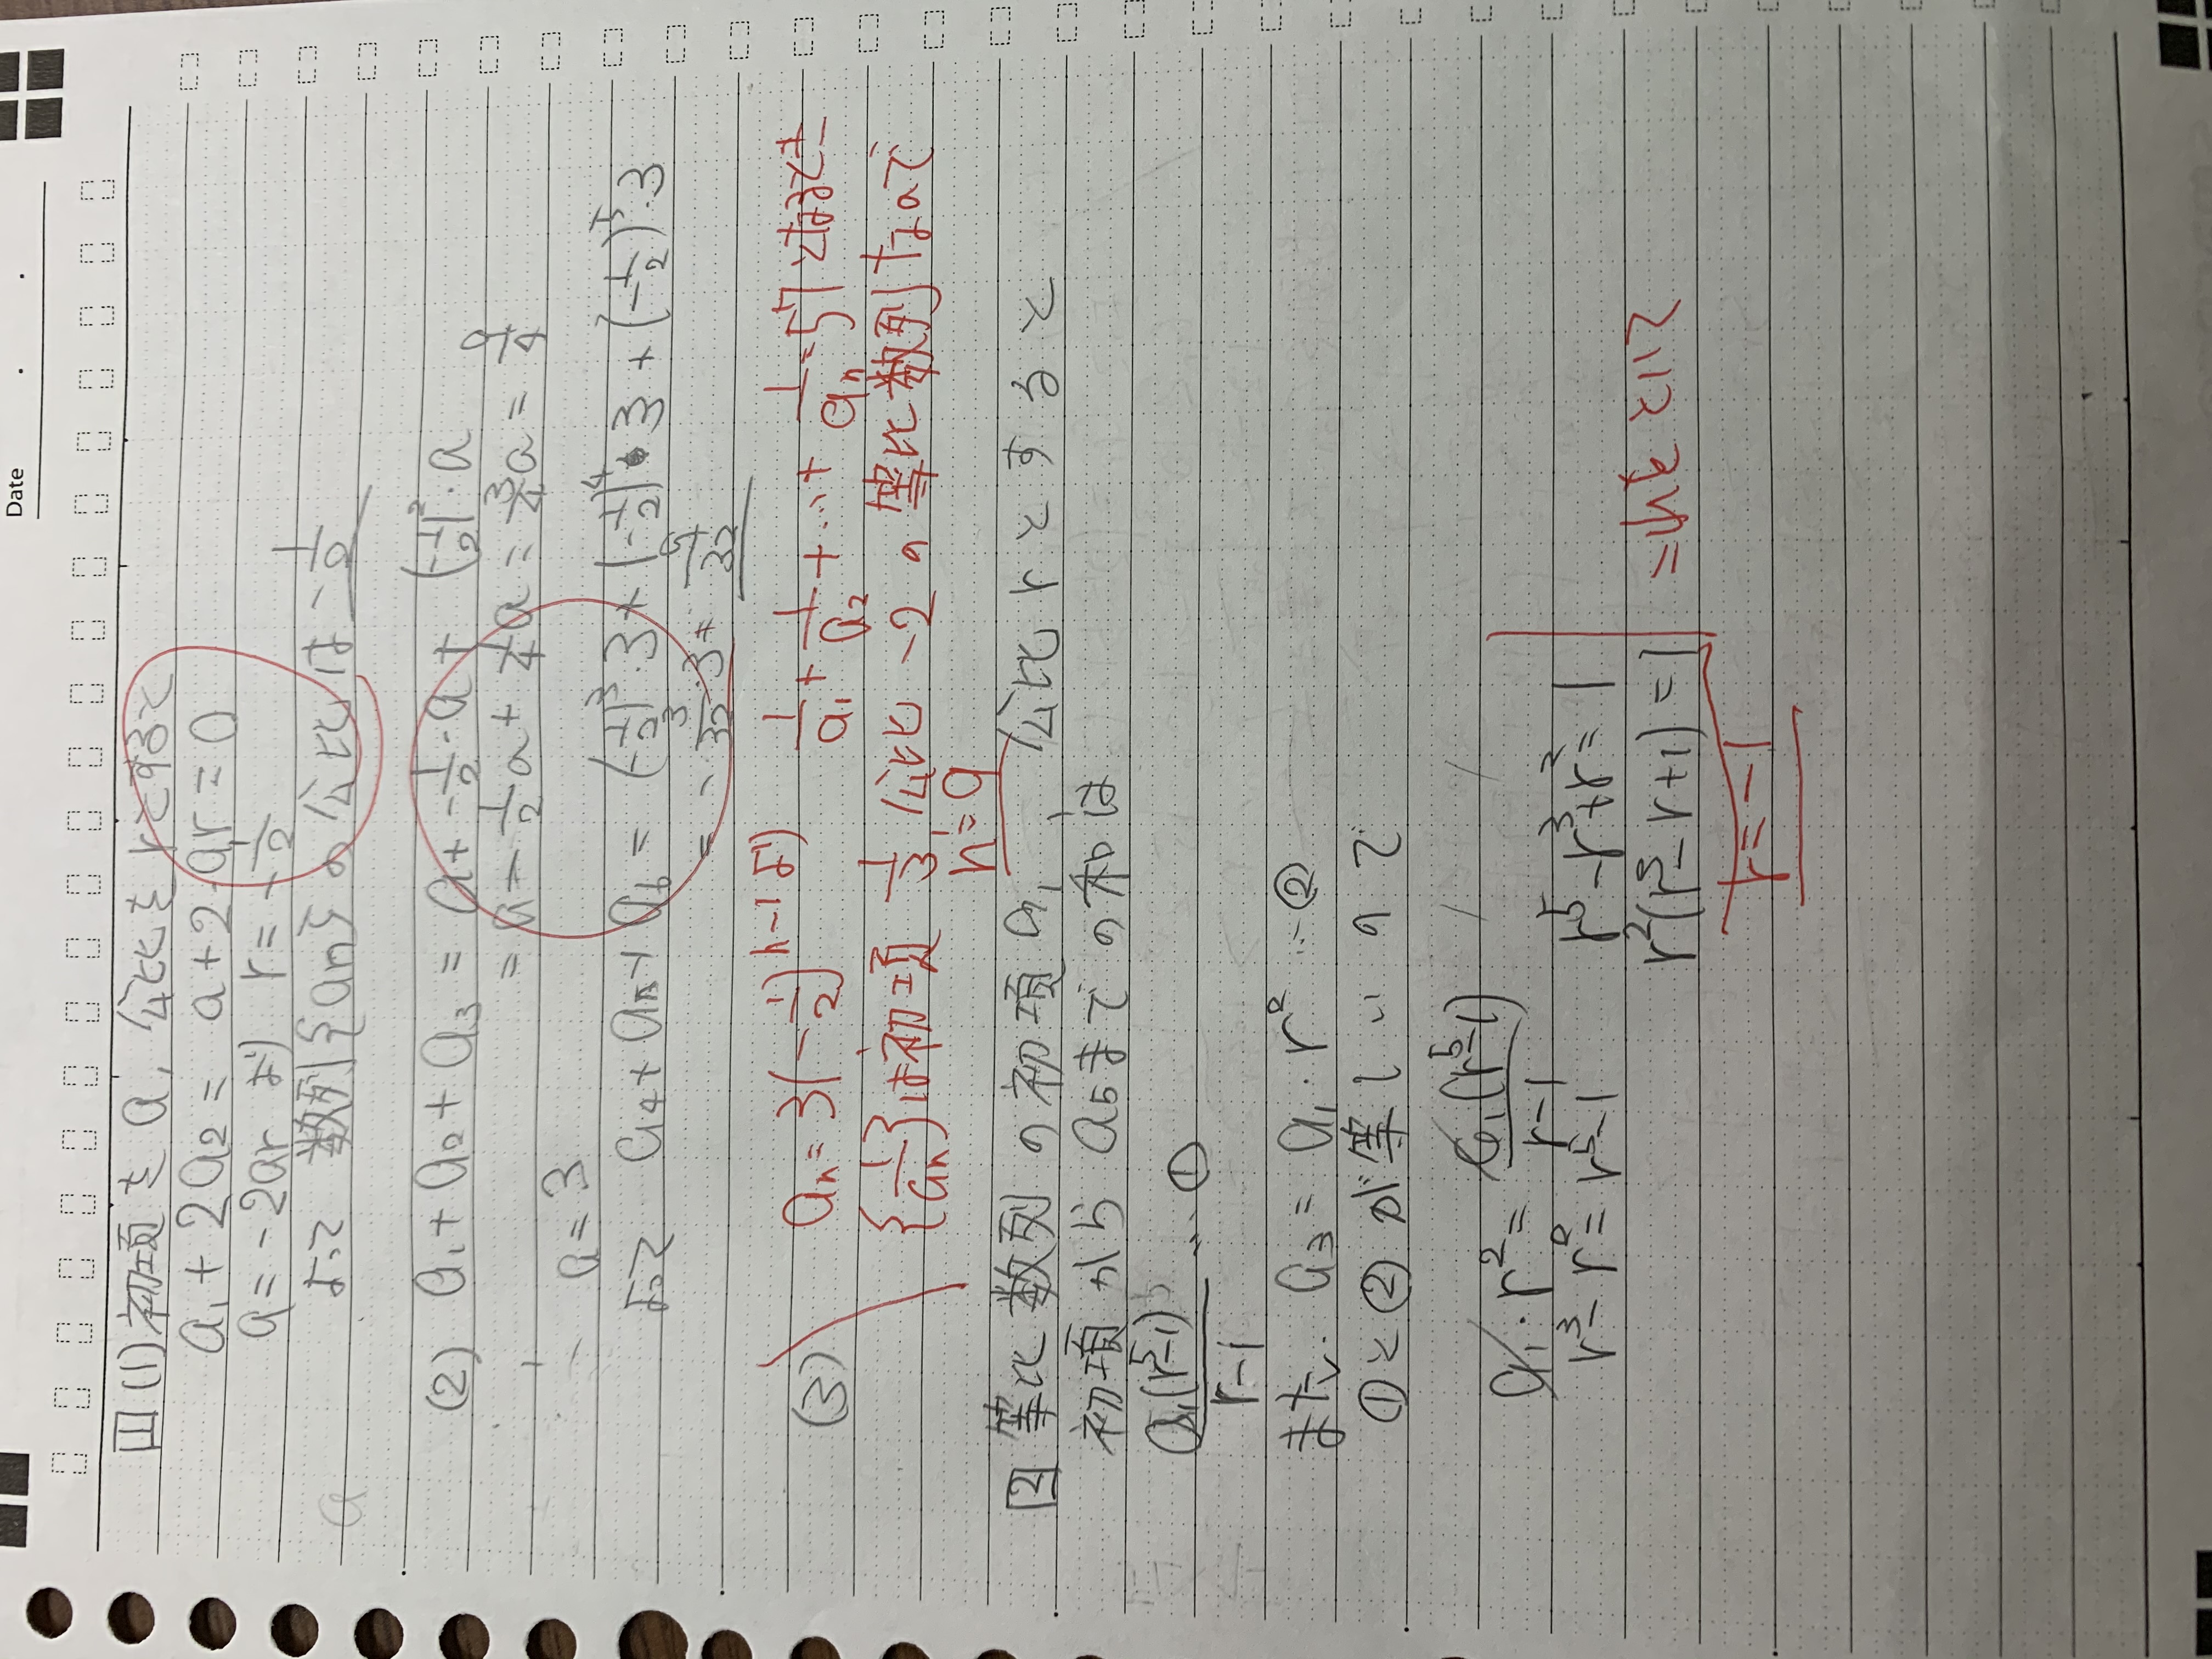 Date . .
1 (1) 初項を a, 公比を rとすると
a₁ + 2a₂ = a + 2・ar = 0
a = -2ar より r = -1/2
よって 数列{an}の公比は -1/2
(2) a₁ + a₂ + a₃ = a + -1/2・a + (-1/2)²・a
= a - 1/2a + 1/4a = 3/4a = 9/4
a = 3
よって a₄ + a₅ + a₆ = (-1/2)³・3 + (-1/2)⁴・3 + (-1/2)⁵・3
(3) an = 3(-1/2)ⁿ⁻¹より 1/a₁ + 1/a₂ + … + 1/an = 57 となるとき
{1/an}は初項 1/3, 公比 -2 の等比数列なので
n = 9
2 等比数列の初項 a₁, 公比 r とすると
初項から a₅までの和は
a₁(r⁵-1)/r-1 … ①
また、a₃ = a₁・r² … ②
①と②が等しいので
a₁・r² = a₁(r⁵-1)/r-1
r³ - r² = r⁵-1 r⁵ - r³ + r² = 1
r²(r³ - r + 1) = 1 これをといて
r = -1